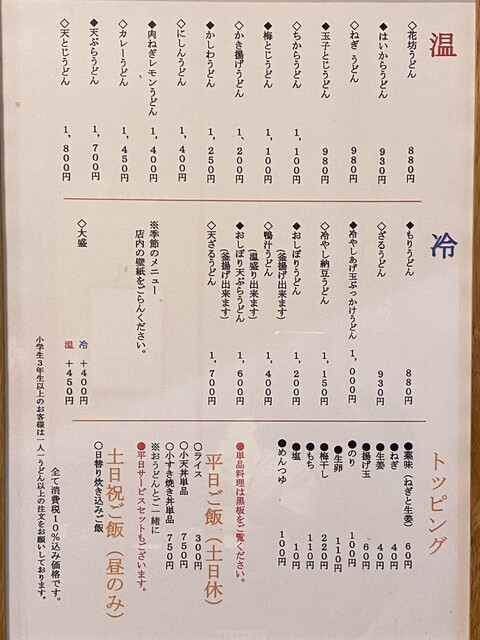 温
◇花坊うどん 880円
◆はいからうどん 930円
◇ねぎ うどん 980円
◆玉子とじうどん 980円
◇ちからうどん 1,100円
◆梅とじうどん 1,100円
◇かき揚げうどん 1,200円
◆かしわうどん 1,250円
◇にしんうどん 1,400円
◆肉ねぎレモンうどん 1,400円
◇カレーうどん 1,450円
◆天ぷらうどん 1,700円
◇天とじうどん 1,800円
冷
◆もりうどん 880円
◇ざるうどん 930円
◆冷やしあげ玉ぶっかけうどん 1,000円
◇冷やし納豆うどん 1,150円
◆おしぼりうどん 1,200円
(釜揚げ出来ます)
◇鴨汁うどん 1,400円
(温盛り出来ます)
◆おしぼり天ぷらうどん 1,600円
(釜揚げ出来ます)
◇天ざるうどん 1,700円
※季節のメニュー
店内の壁紙をごらんください。
◇大盛 冷 +400円
温 +450円
トッピング
●薬味(ねぎと生姜) 60円
●ねぎ 40円
●生姜 40円
●揚げ玉 60円
●のり 100円
●生卵 110円
●梅干し 220円
●もち 110円
●塩 10円
●めんつゆ 100円
●単品料理は黒板をご覧ください。
平日ご飯(土日休)
○ライス 300円
○小天丼単品 750円
○小すき焼き丼単品 750円
※おうどんとご一緒に
●平日サービスセットもございます。
土日祝ご飯(昼のみ)
○日替り炊き込みご飯
全て消費税10%込み価格です。
小学生3年生以上のお客様は一人一うどん以上の注文をお願いしております。